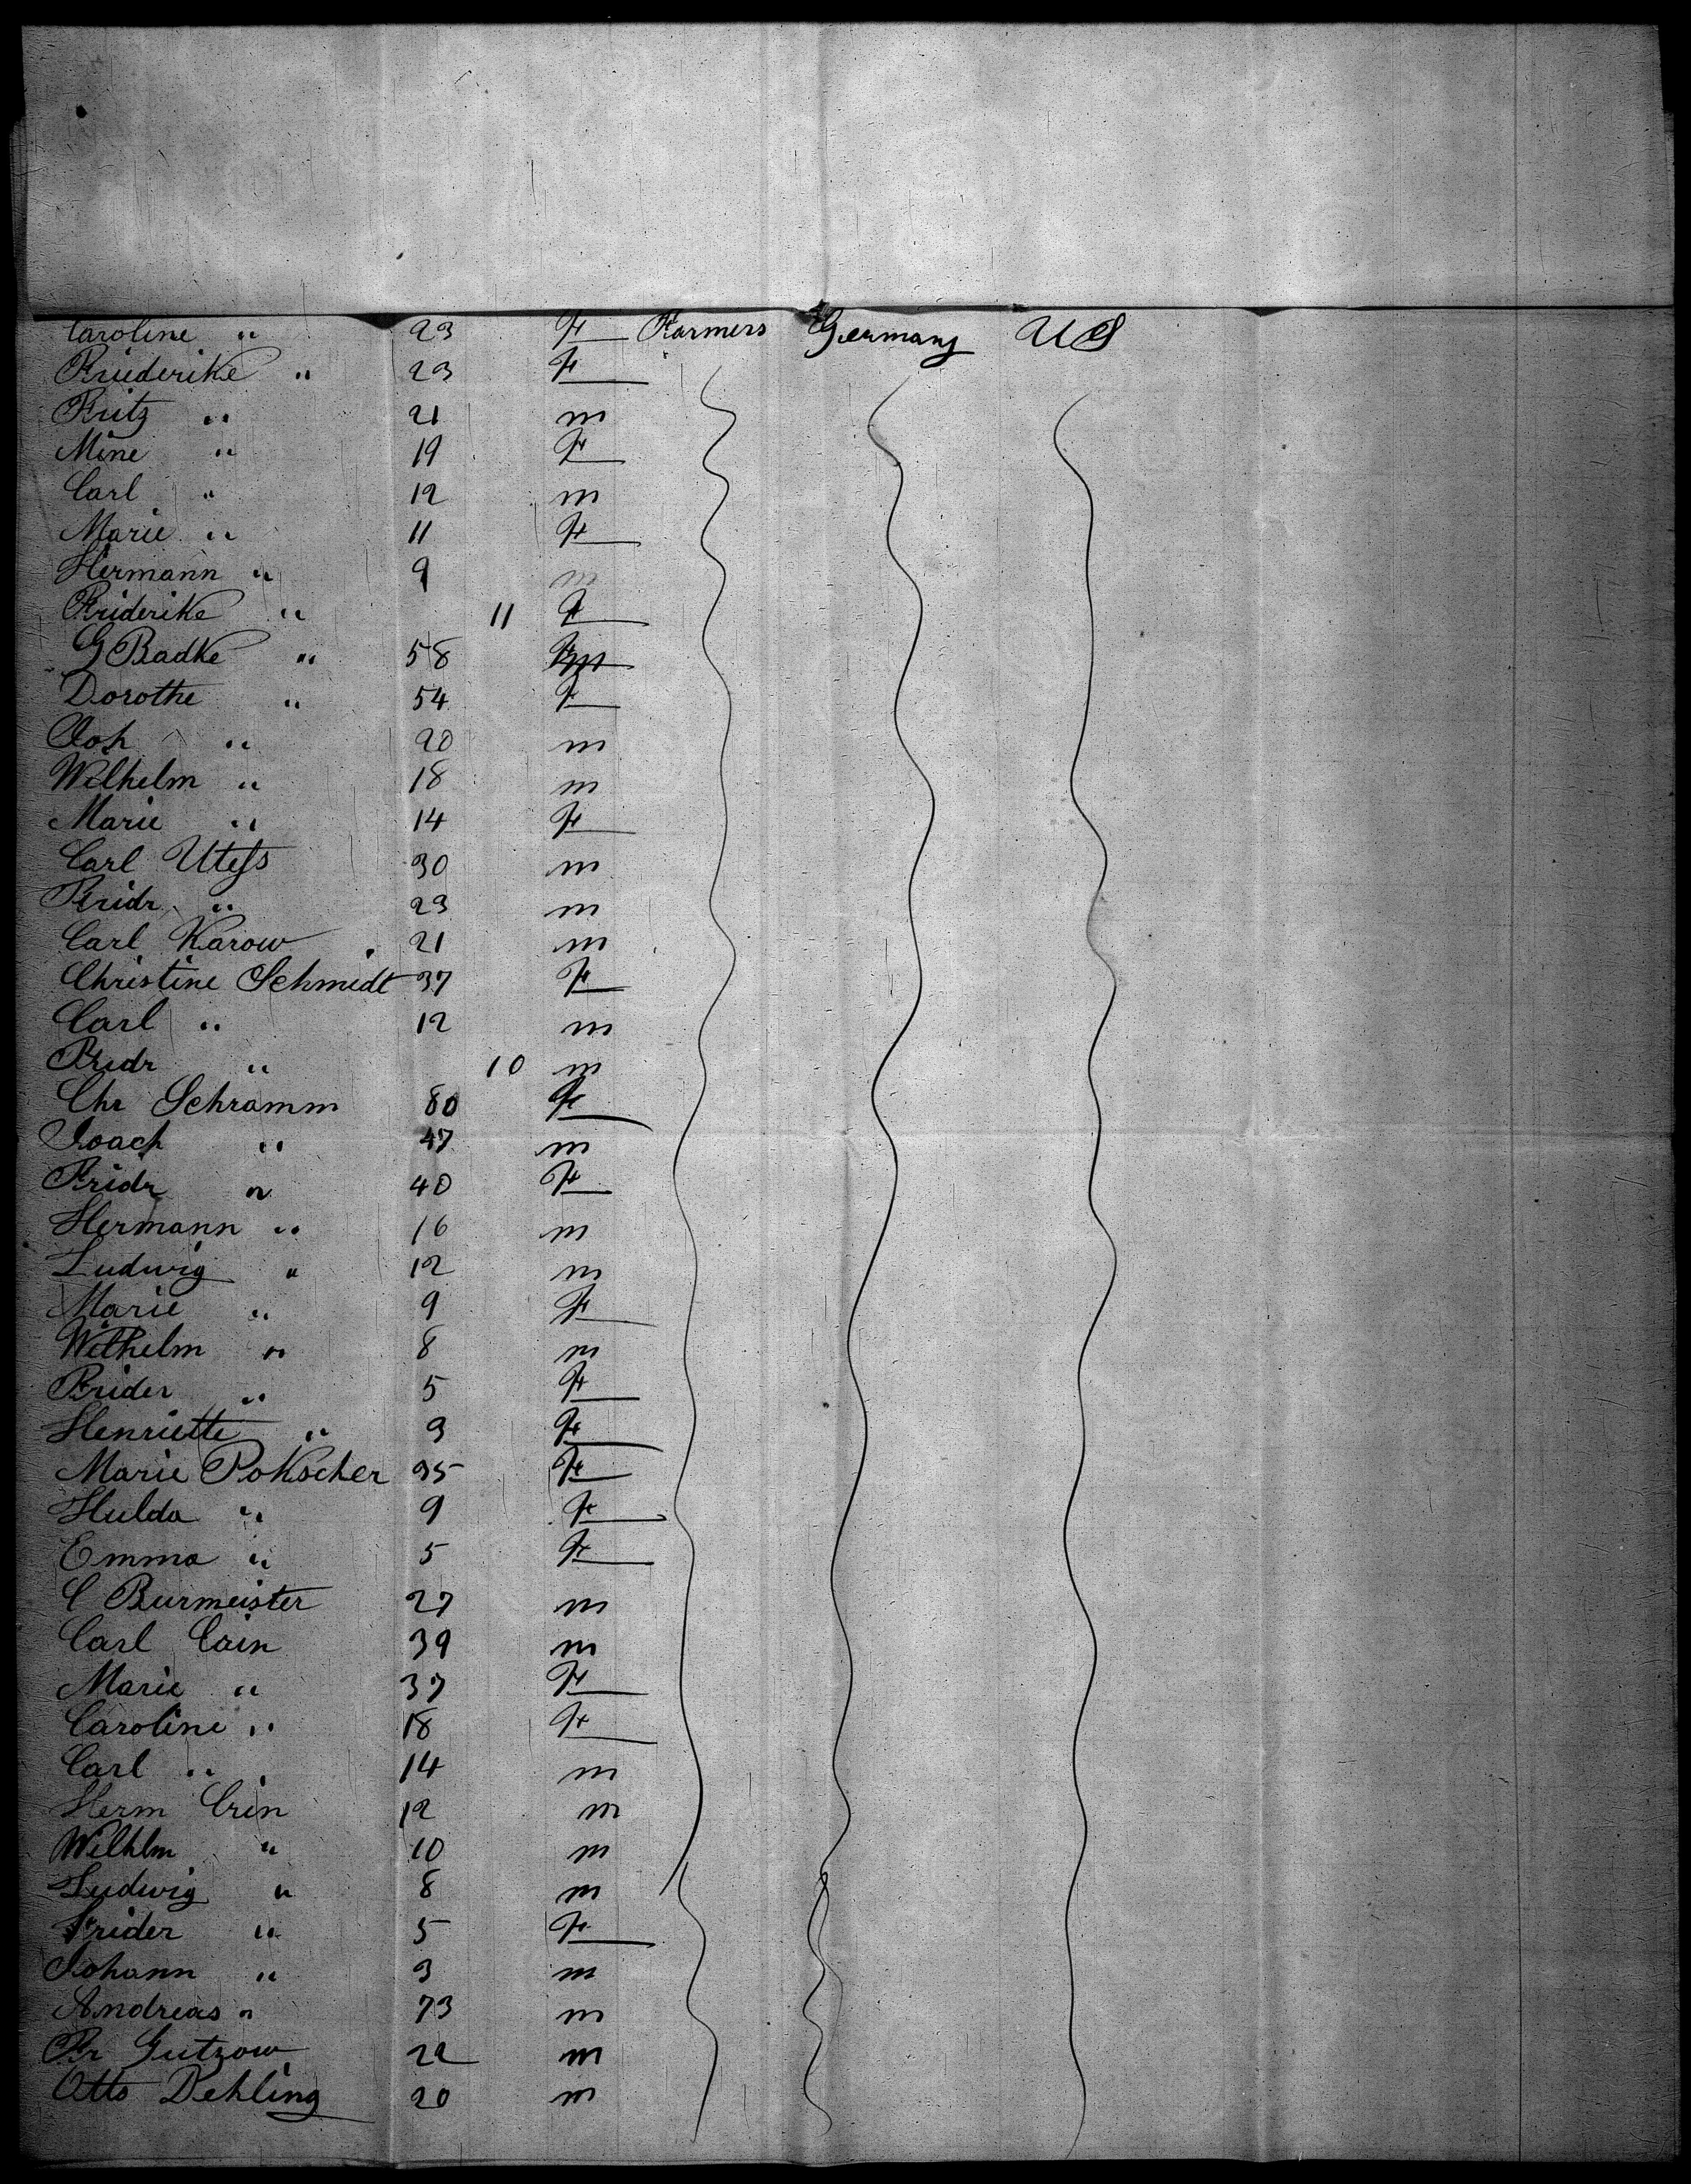 Caroline " 23 F Farmers Germany US
Friederike " 23 F
Fritz " 21 m
Mine " 19 F
Carl " 12 m
Marie " 11 F
Hermann " 9 m
Friderike " 11 F
G Badke " 58 m
Dorothe " 54 F
Joh " 20 m
Wilhelm " 18 m
Marie " 14 F
Carl Utess 30 m
Fridr " 23 m
Carl Karow 21 m
Christine Schmidt 37 F
Carl " 12 m
Fridr " 10 m
Chr Schramm 80 F
Joach " 47 m
Fridr " 40 F
Hermann " 16 m
Ludwig " 12 m
Marie " 9 F
Wilhelm " 8 m
Frider " 5 F
Henriette " 3 F
Marie Pokscher 35 F
Hulda " 9 F
Emma " 5 F
C Burmeister 27 m
Carl Crin 39 m
Marie " 37 F
Caroline " 18 F
Carl " 14 m
Herm Crin 12 m
Wilhlm " 10 m
Ludwig " 8 m
Frider " 5 F
Johann " 3 m
Andreas " 73 m
Fr Gutzow 22 m
Otto Dehling 20 m